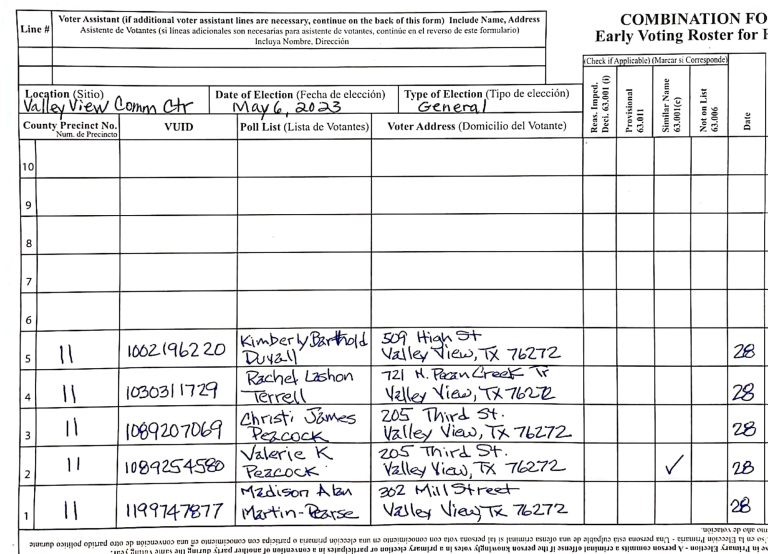 Voter Assistant (if additional voter assistant lines are necessary, continue on the back of this form) Include Name, Address
Line # Asistente de Votantes (si lineas adicionales son necesarias para asistente de votantes, continúe en el reverso de este formulario)
Incluya Nombre, Dirección
COMBINATION FO
Early Voting Roster for
(Check if Applicable) (Marcar si Corresponde)
Location (Sitio) Date of Election (Fecha de elección) Type of Election (Tipo de elección)
Valley View Comm Ctr May 6, 2023 General
County Precinct No. VUID Poll List (Lista de Votantes) Voter Address (Domicilio del Votante)
Num. de Precincto
Reas. Imped.
Decl. 63.001 (i)
Provisional
63.011
Similar Name
63.001(c)
Not on List
63.006
Date
10
9
8
7
6
Kimberly Barthold 509 High St
5 11 1002196220 Duvall Valley View, TX 76272 28
Rachel Lashon 721 N. Pecan Creek Tr
4 11 1030311729 Terrell Valley View, TX 76272 28
Christi James 205 Third St.
3 11 1089207069 Peacock Valley View, TX 76272 28
Valerie K 205 Third St.
2 11 1089254580 Peacock Valley View, TX 76272 ✓ 28
Madison Alan 302 Mill Street
1 11 1199747877 Martin-Pearse Valley View, TX 76272 28
mo año de votación.
to en la Elección Primaria - Una persona esta culpable de una ofensa criminal si tal persona vota con conocimiento en una elección primaria o participa con conocimiento en una convención de otro partido político durante
in Primary Election - A person commits a criminal offense if the person knowingly votes in a primary election or participates in a convention of another party during the same voting year.